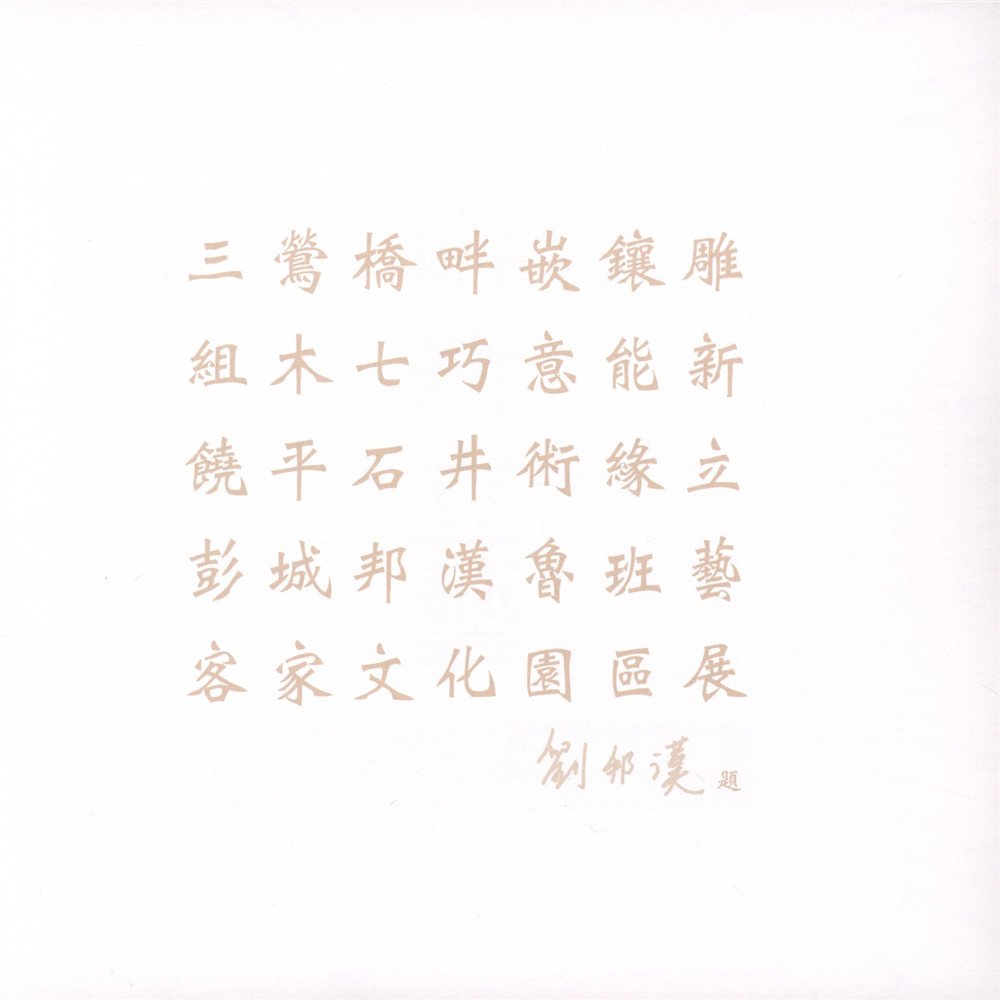 三鶯橋畔嵌鑲雕
組木七巧意能新
饒平石井術緣立
彭城邦漢魯班藝
客家文化園區展
劉邦漢題